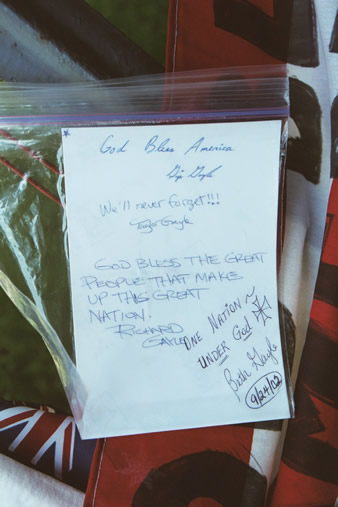 God Bless America
We'll never forget!!!
GOD BLESS THE GREAT
PEOPLE THAT MAKE
UP THIS GREAT
NATION.
RICHARD
GAYLE
ONE NATION ~
UNDER God
Beth Gayle
9/24/02